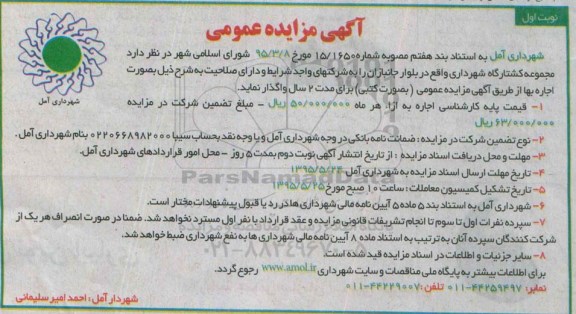 نوبت اول
آگهی مزایده عمومی
شهرداری آمل
شهرداری آمل به استناد بند هفتم مصوبه شماره ۱۵/۱۶۵۰ مورخ ۹۵/۳/۸ شورای اسلامی شهر در نظر دارد
مجموعه کشتارگاه شهرداری واقع در بلوار جانبازان را به شرکتهای واجد شرایط و دارای صلاحیت به شرح ذیل بصورت
اجاره بها از طریق آگهی مزایده عمومی (بصورت کتبی) برای مدت ۲ سال واگذار نماید.
۱- قیمت پایه کارشناسی اجاره به ازاء هر ماه ۵۰/۰۰۰/۰۰۰ ریال - مبلغ تضمین شرکت در مزایده
۶۳/۰۰۰/۰۰۰ ریال
۲- نوع تضمین شرکت در مزایده: ضمانت نامه بانکی در وجه شهرداری آمل و یا وجه نقد بحساب سیبا ۰۲۲۰۶۶۸۹۸۲۰۰۰ بنام شهرداری آمل.
۳- مهلت و محل دریافت اسناد مزایده: از تاریخ انتشار آگهی نوبت دوم بمدت ۵ روز - محل امور قراردادهای شهرداری آمل.
۴- تاریخ مهلت ارسال اسناد مزایده به شهرداری آمل ۱۳۹۵/۵/۲۴
۵- تاریخ تشکیل کمیسیون معاملات: ساعت ۱۰ صبح مورخ ۱۳۹۵/۵/۲۵
۶- شهرداری آمل به استناد بند ۵ ماده ۵ آیین نامه مالی شهرداری ها در رد یا قبول پیشنهادات مختار است.
۷- سپرده نفرات اول تا سوم تا انجام تشریفات قانونی مزایده و عقد قرارداد با نفر اول مسترد نخواهد شد. ضمنا در صورت انصراف هر یک از
شرکت کنندگان سپرده آنان به ترتیب به استناد ماده ۸ آیین نامه مالی شهرداری ها به نفع شهرداری ضبط خواهد شد.
۸- سایر جزئیات و اطلاعات در اسناد مزایده قید شده است.
برای اطلاعات بیشتر به پایگاه ملی مناقصات و سایت شهرداری www.amol.ir رجوع گردد.
نمابر: ۴۴۲۵۹۴۹۷-۰۱۱ تلفن: ۴۴۲۲۹۰۰۷-۰۱۱
شهردار آمل: احمد امیر سلیمانی
ParsNamadData